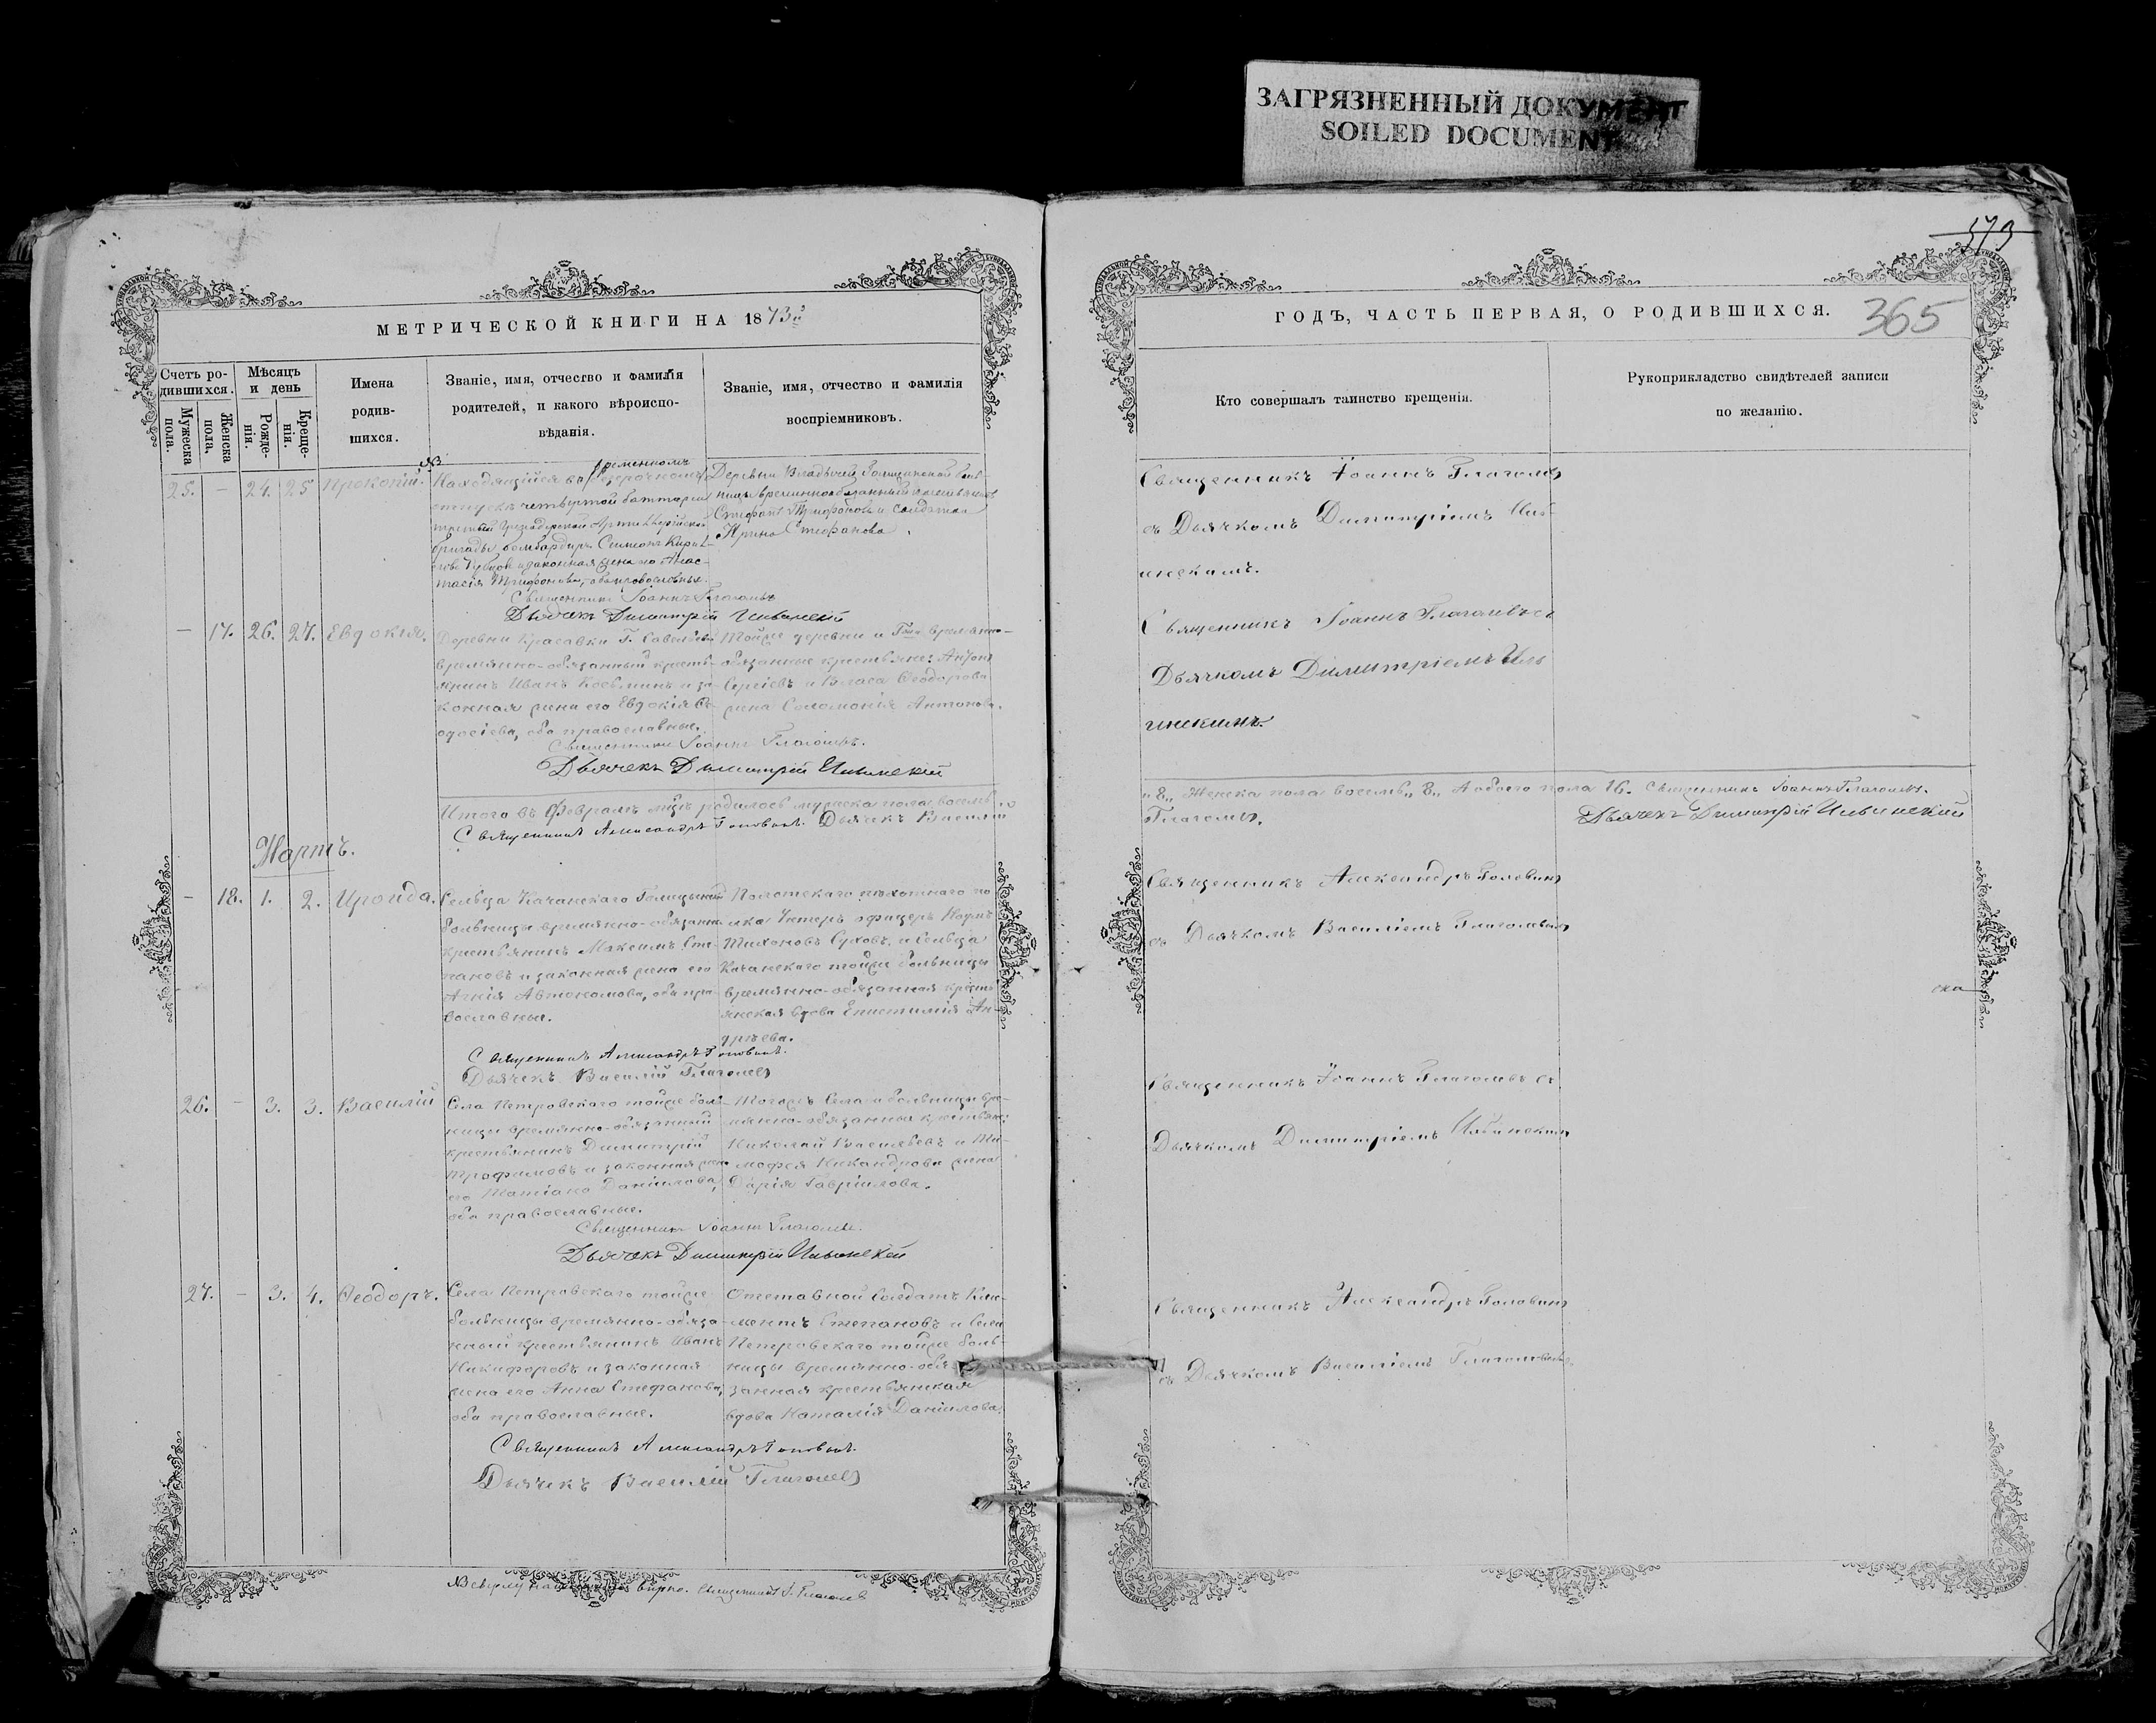 ЗАГРЯЗНЕННЫЙ ДОКУМЕНТ
SOILED DOCUMENT
373
МЕТРИЧЕСКОЙ КНИГИ НА 1873й
Счетъ ро-
дившихся.
Мужеска
пола.
Женска
пола.
Мѣсяцъ
и день
Рожде-
нія.
Креще-
нія.
Имена
родив-
шихся.
Званіе, имя, отчество и фамилія
родителей, и какого вѣроиспо-
вѣданія.
Званіе, имя, отчество и фамилія
воспріемниковъ.
25. - 24. 25 Прокопій.
временномъ
Находящійся въ
отпуску четвертой баттареи
Гренадерской Артиллерійской
бригады бомбардиръ Симеонъ Кирил-
ловъ и законная жена его Анас-
тасія Трифонова, оба православные.
Священникъ Іоаннъ Глаголевъ
Дьячекъ Димитрій Ильинскій
Деревни Голицынской боль-
ницы временнообязанный крестьянинъ
Стефанъ Трифоновъ и солдатка
Ирина Стефанова.
- 17. 26. 27. Евдокія.
Деревни Красавки Г.
времянно-обязанный кресть-
янинъ Иванъ Косьминъ и за-
конная жена его Евдокія Ѳе-
одосіева, оба православные.
Священникъ Іоаннъ Глаголевъ.
Дьячекъ Димитрій Ильинскій
Тойже деревни и времянно-
обязанные крестьяне: Антонъ
Сергіевъ и Власа Ѳеодорова
жена Соломонія Антонова.
Итого въ Февралѣ мцѣ родилось мужеска пола восемь
Священникъ Александръ Головинъ. Дьячекъ Василій
Мартъ.
- 18. 1. 2. Ираида.
Сельца Качанскаго Голицынской
больницы времянно-обязанный
крестьянинъ Максимъ Сте-
пановъ и законная жена его
Агнія Автономова, оба пра-
вославные.
Священникъ Александръ Головинъ.
Дьячекъ Василій Глаголевъ
Полотскаго пѣхотнаго по-
лка Унтеръ офицеръ
Тихоновъ Суховъ, и Сельца
Качанскаго тойже больницы
времянно-обязанная кресть-
янская вдова Епистимія Ан-
дреева.
26. - 3. 3. Василій
Села Петровскаго тойже боль-
ницы времянно-обязанный
крестьянинъ Димитрій
Трофимовъ и законная жена
его Татіана Даніилова,
оба православные.
Священникъ Іоаннъ Глаголевъ.
Дьячекъ Димитрій Ильинскій
Тогоже Села и больницы вре-
мянно-обязанные крестьяне:
Николай Васильевъ и Ти-
мофея Никандрова жена
Дарія Гавріилова.
27. - 3. 4. Ѳеодоръ.
Села Петровскаго тойже
больницы времянно-обяза-
нный крестьянинъ Иванъ
Никифоровъ и законная
жена его Анна Стефанова,
оба православные.
Священникъ Александръ Головинъ.
Дьячекъ Василій Глаголевъ
Отставной Солдатъ Кли-
ментъ Степановъ и Села
Петровскаго тойже боль-
ницы времянно-обя-
занная крестьянская
вдова Наталія Даніилова.
вѣрно. Священникъ І. Глаголевъ
ГОДЪ, ЧАСТЬ ПЕРВАЯ, О РОДИВШИХСЯ.
365
Кто совершалъ таинство крещенія.
Рукоприкладство свидѣтелей записи
по желанію.
Священникъ Іоаннъ Глаголевъ
съ Дьячкомъ Димитріемъ Иль-
инскимъ.
Священникъ Іоаннъ Глаголевъ съ
Дьячкомъ Димитріемъ Иль
инскимъ.
„8„ Женска пола восемь „8„ А обоего пола 16. Священникъ Іоаннъ Глаголевъ.
Глаголевъ.
Дьячекъ Димитрій Ильинскій
Священникъ Александръ Головинъ
съ Дьячкомъ Василіемъ Глаголевымъ
Священникъ Іоаннъ Глаголевъ съ
Дьячкомъ Димитріемъ Ильинскимъ
Священникъ Александръ Головинъ
съ Дьячкомъ Василіемъ Глаголевымъ